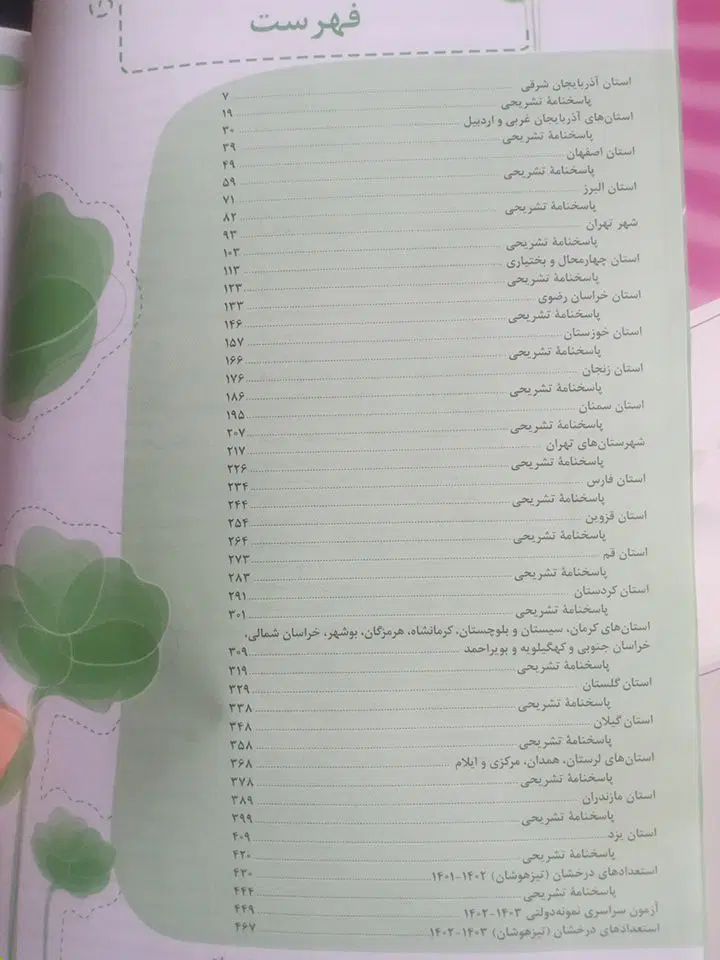 فهرست
استان آذربایجان شرقی ۷
پاسخنامهٔ تشریحی ۱۹
استان‌های آذربایجان غربی و اردبیل ۳۰
پاسخنامهٔ تشریحی ۳۹
استان اصفهان ۴۹
پاسخنامهٔ تشریحی ۵۹
استان البرز ۷۱
پاسخنامهٔ تشریحی ۸۲
شهر تهران ۹۳
پاسخنامهٔ تشریحی ۱۰۳
استان چهارمحال و بختیاری ۱۱۳
پاسخنامهٔ تشریحی ۱۲۳
استان خراسان رضوی ۱۳۳
پاسخنامهٔ تشریحی ۱۴۶
استان خوزستان ۱۵۷
پاسخنامهٔ تشریحی ۱۶۶
استان زنجان ۱۷۶
پاسخنامهٔ تشریحی ۱۸۶
استان سمنان ۱۹۵
پاسخنامهٔ تشریحی ۲۰۷
شهرستان‌های تهران ۲۱۷
پاسخنامهٔ تشریحی ۲۲۶
استان فارس ۲۳۴
پاسخنامهٔ تشریحی ۲۴۴
استان قزوین ۲۵۴
پاسخنامهٔ تشریحی ۲۶۴
استان قم ۲۷۳
پاسخنامهٔ تشریحی ۲۸۳
استان کردستان ۲۹۱
پاسخنامهٔ تشریحی ۳۰۱
استان‌های کرمان، سیستان و بلوچستان، کرمانشاه، هرمزگان، بوشهر، خراسان شمالی،
خراسان جنوبی و کهگیلویه و بویراحمد ۳۰۹
پاسخنامهٔ تشریحی ۳۱۹
استان گلستان ۳۲۹
پاسخنامهٔ تشریحی ۳۳۸
استان گیلان ۳۴۸
پاسخنامهٔ تشریحی ۳۵۸
استان‌های لرستان، همدان، مرکزی و ایلام ۳۶۸
پاسخنامهٔ تشریحی ۳۷۸
استان مازندران ۳۸۹
پاسخنامهٔ تشریحی ۳۹۹
استان یزد ۴۰۹
پاسخنامهٔ تشریحی ۴۲۰
استعدادهای درخشان (تیزهوشان) ۱۴۰۲-۱۴۰۱ ۴۳۰
پاسخنامهٔ تشریحی ۴۴۴
آزمون سراسری نمونه‌دولتی ۱۴۰۳-۱۴۰۲ ۴۴۹
استعدادهای درخشان (تیزهوشان) ۱۴۰۳-۱۴۰۲ ۴۶۷